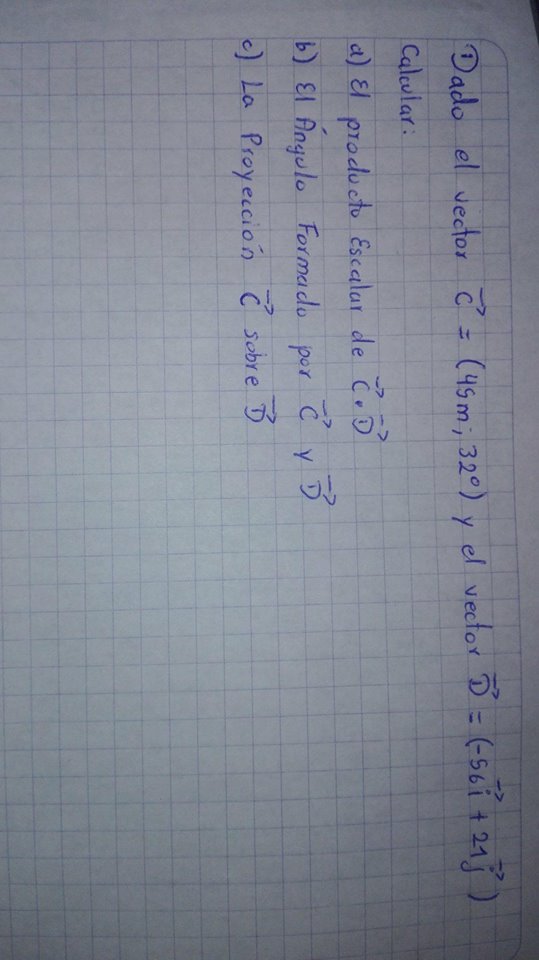 ① Dado el vector C⃗ = (45m; 32°) y el vector D⃗ = (-56i⃗ + 21j⃗)
Calcular:
a) El producto Escalar de C⃗ • D⃗
b) El Ángulo Formado por C⃗ y D⃗
c) La Proyección C⃗ sobre D⃗